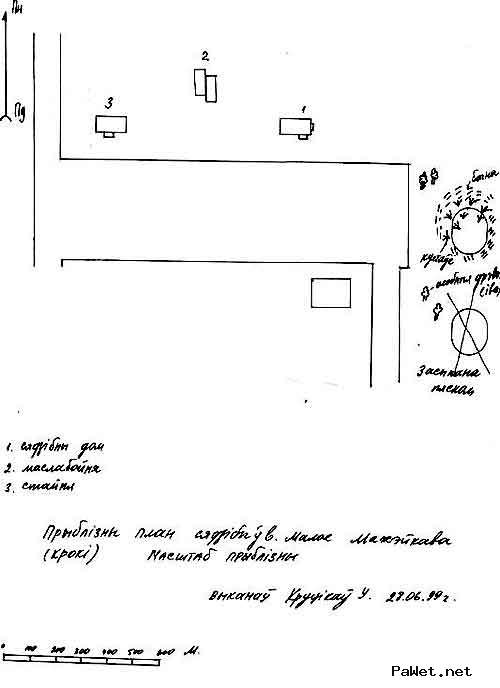 Пн
2
Пд
3
1
багна
кустоўе
асобныя дрэвы
Засыпана
пяском
1. сядзібны дом
2. маслабойня
3. стайня
Прыблізны план сядзібы ў в. Малое Мажэйкава
(крокі) Масштаб прыблізны
Выканаў Круцікаў У. 27.06.99 г.
0 100 200 300 400 500 600 М.
PaWet.net